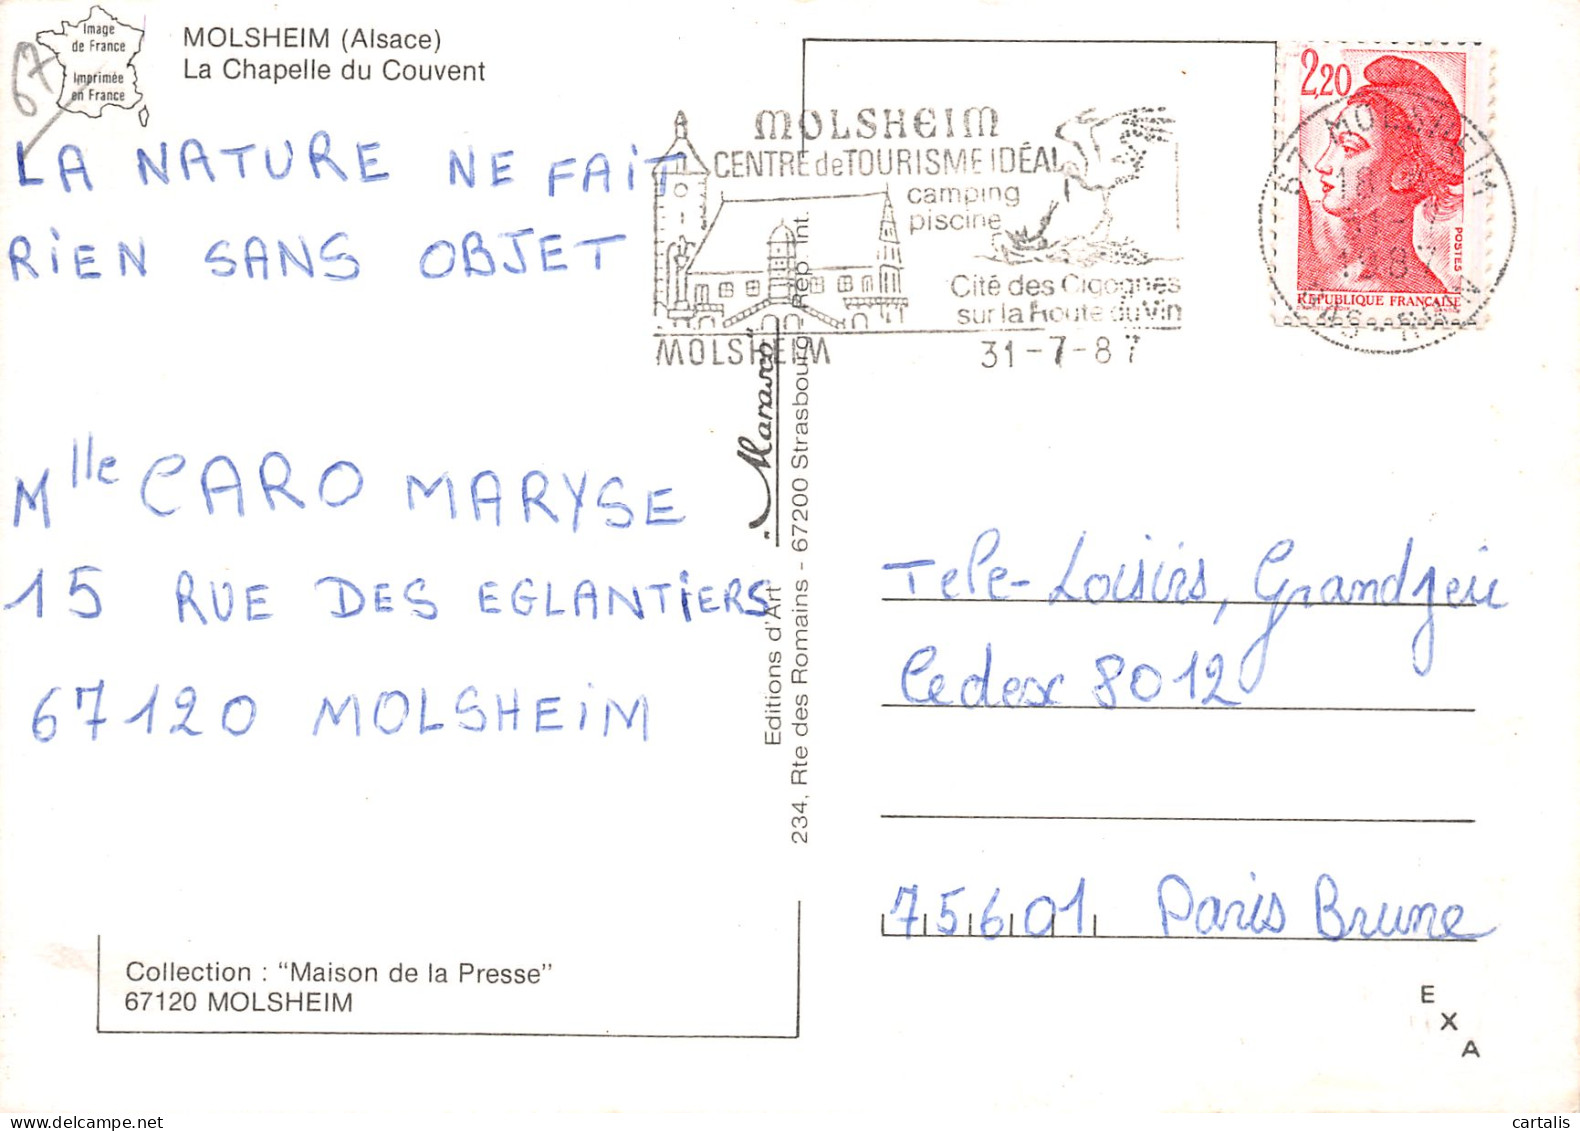 Image
de France
Imprimée
en France
67
MOLSHEIM (Alsace)
La Chapelle du Couvent
LA NATURE NE FAiT
RiEN SANS OBJET
Mlle CARO MARYSE
15 RUE DES EGLANTiERS
67120 MOLSHEiM
Collection : "Maison de la Presse"
67120 MOLSHEIM
"Marasco"
Editions d'Art
234, Rte des Romains - 67200 Strasbourg Rep. Int.
MOLSHEIM
CENTRE de TOURISME IDÉAL
camping
piscine
Cité des Cigognes
sur la Route du Vin
MOLSHEIM
31-7-87
2,20
POSTES
REPUBLIQUE FRANÇAISE
67 MOLSHEIM
Tele-Loisirs, Grandjeu
Cedex 8012
75601 Paris Brune
E
X
A
cartalis